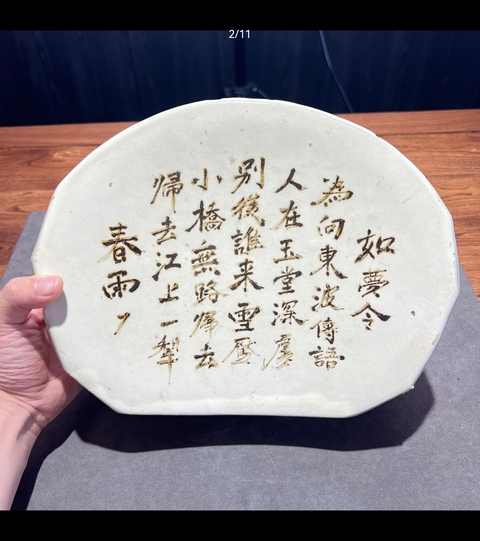 2/11
如夢令
為向東波傳語
人在玉堂深處
別後誰來雪壓
小橋無路歸去
歸去江上一犁
春雨